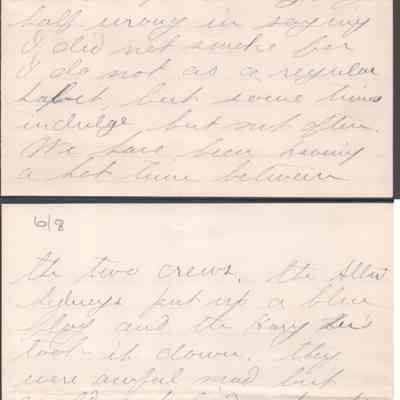 half wrong in saying
I did not smoke for
I do not as a regular
habit, but some times
indulge but not often.
We have been having
a hot time between
6/8
the two crews. the
Sydneys put up a blue
flag and the
took it down. they
were awful mad but